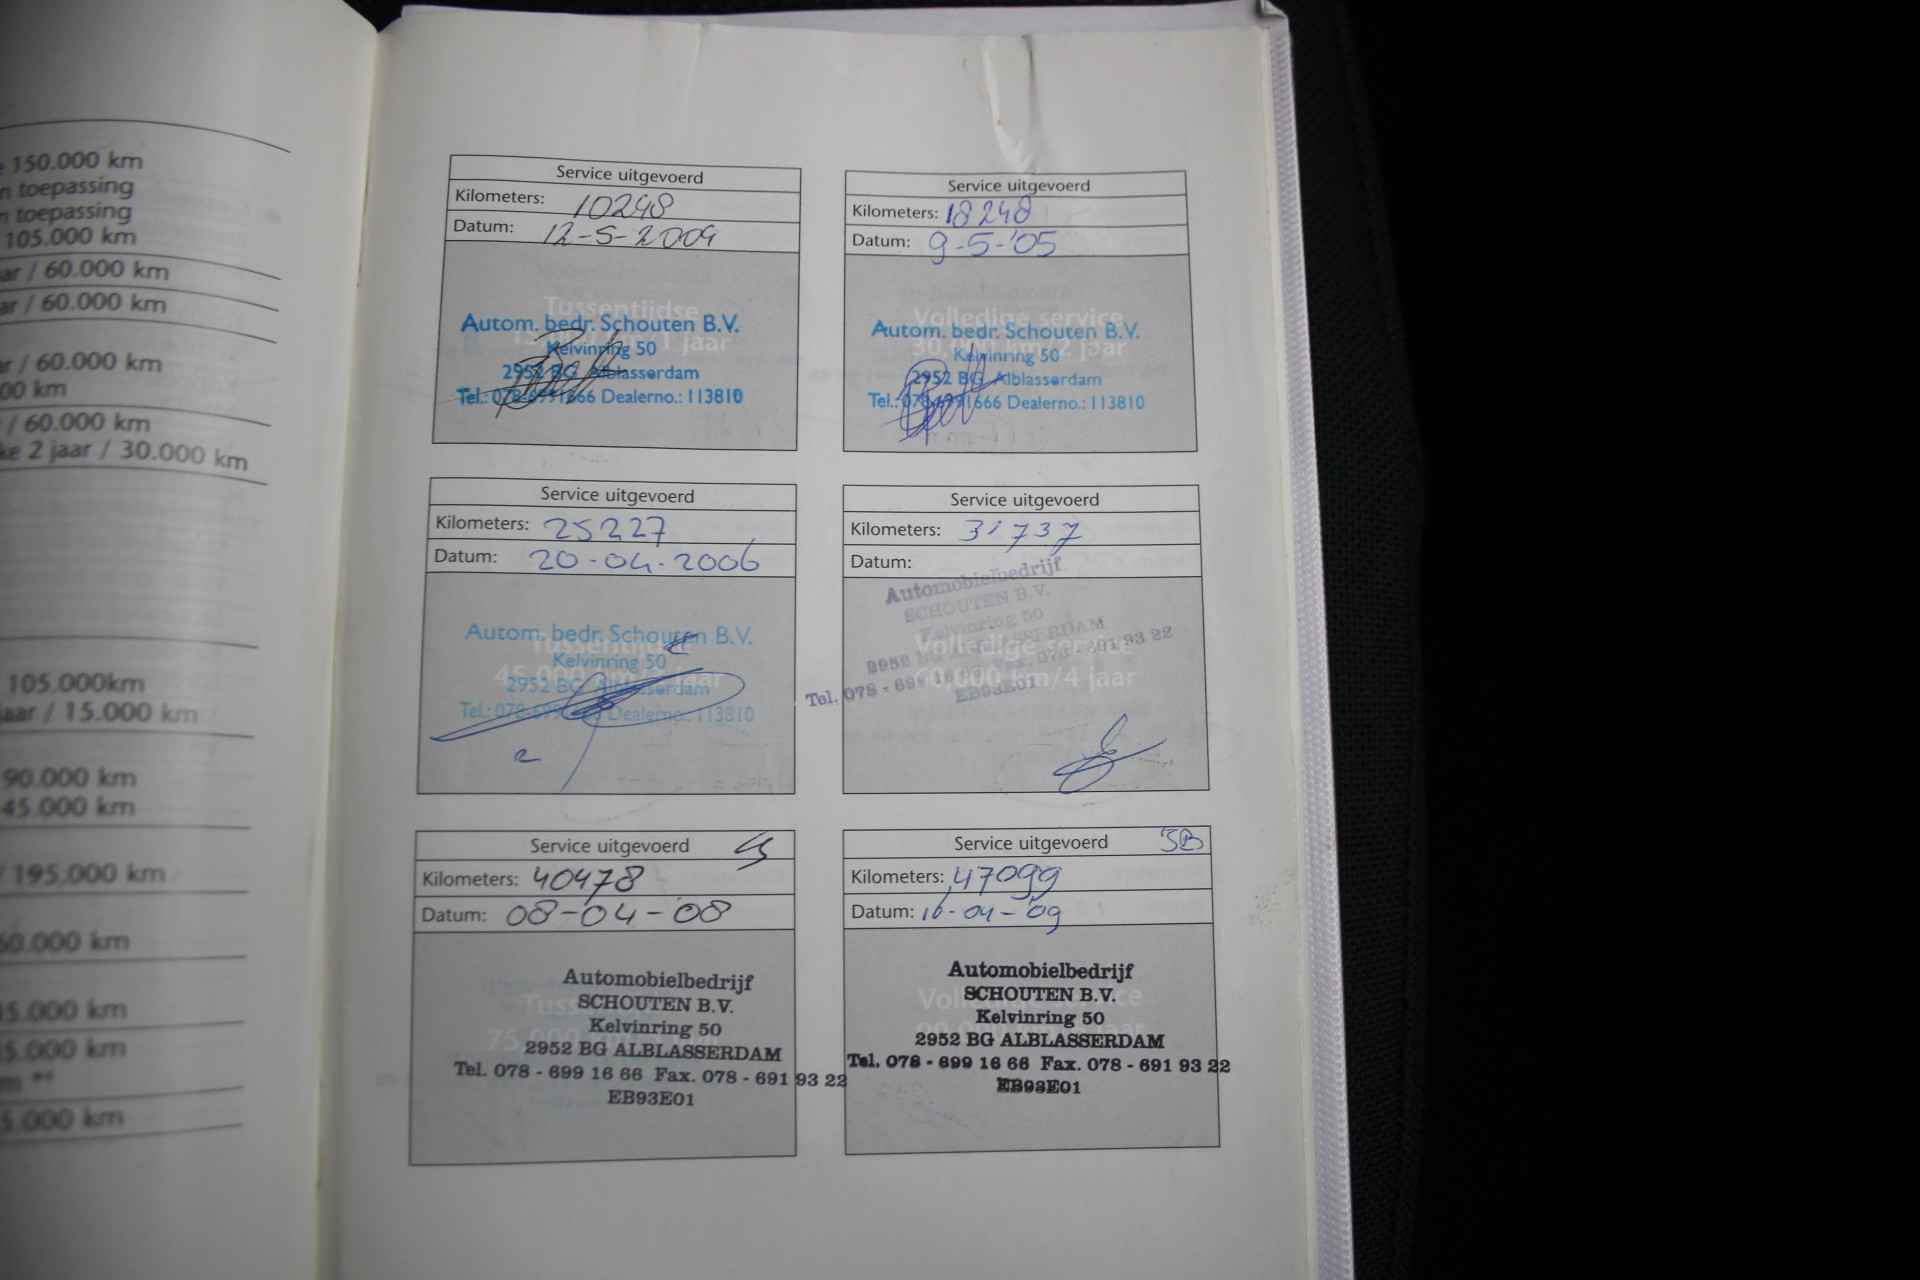 150.000 km
n toepassing
n toepassing
105.000 km
ar / 60.000 km
ar / 60.000 km
r / 60.000 km
00 km
/ 60.000 km
ke 2 jaar / 30.000 km
105.000km
jaar / 15.000 km
90.000 km
45.000 km
/ 195.000 km
60.000 km
15.000 km
5.000 km
5.000 km
Service uitgevoerd
Kilometers: 10248
Datum: 12-5-2004
Tussentijdse
1 jaar
Autom. bedr. Schouten B.V.
Kelvinring 50
2952 BG Alblasserdam
Tel.: 078-6991666 Dealerno.: 113810
Service uitgevoerd
Kilometers: 18248
Datum: 9-5-'05
Volledige service
30.000 km/2 jaar
Autom. bedr. Schouten B.V.
Kelvinring 50
2952 BG Alblasserdam
Tel.: 078-6991666 Dealerno.: 113810
Service uitgevoerd
Kilometers: 25227
Datum: 20-04-2006
Tussentijdse
45.000 km
Autom. bedr. Schouten B.V.
Kelvinring 50
2952 BG Alblasserdam
Tel.: 078-699 Dealerno.: 113810
Service uitgevoerd
Kilometers: 31737
Datum:
Automobielbedrijf
SCHOUTEN B.V.
Kelvinring 50
Volledige service
60.000 km/4 jaar
2952
Tel. 078 - 699 16 Fax. 078 - 691 93 22
EB93E01
Service uitgevoerd
Kilometers: 40478
Datum: 08-04-08
75.000
Automobielbedrijf
SCHOUTEN B.V.
Kelvinring 50
2952 BG ALBLASSERDAM
Tel. 078 - 699 16 66 Fax. 078 - 691 93 22
EB93E01
Service uitgevoerd SB
Kilometers: 47099
Datum: 16-04-'09
Volledige service
Automobielbedrijf
SCHOUTEN B.V.
Kelvinring 50
2952 BG ALBLASSERDAM
Tel. 078 - 699 16 66 Fax. 078 - 691 93 22
EB93E01